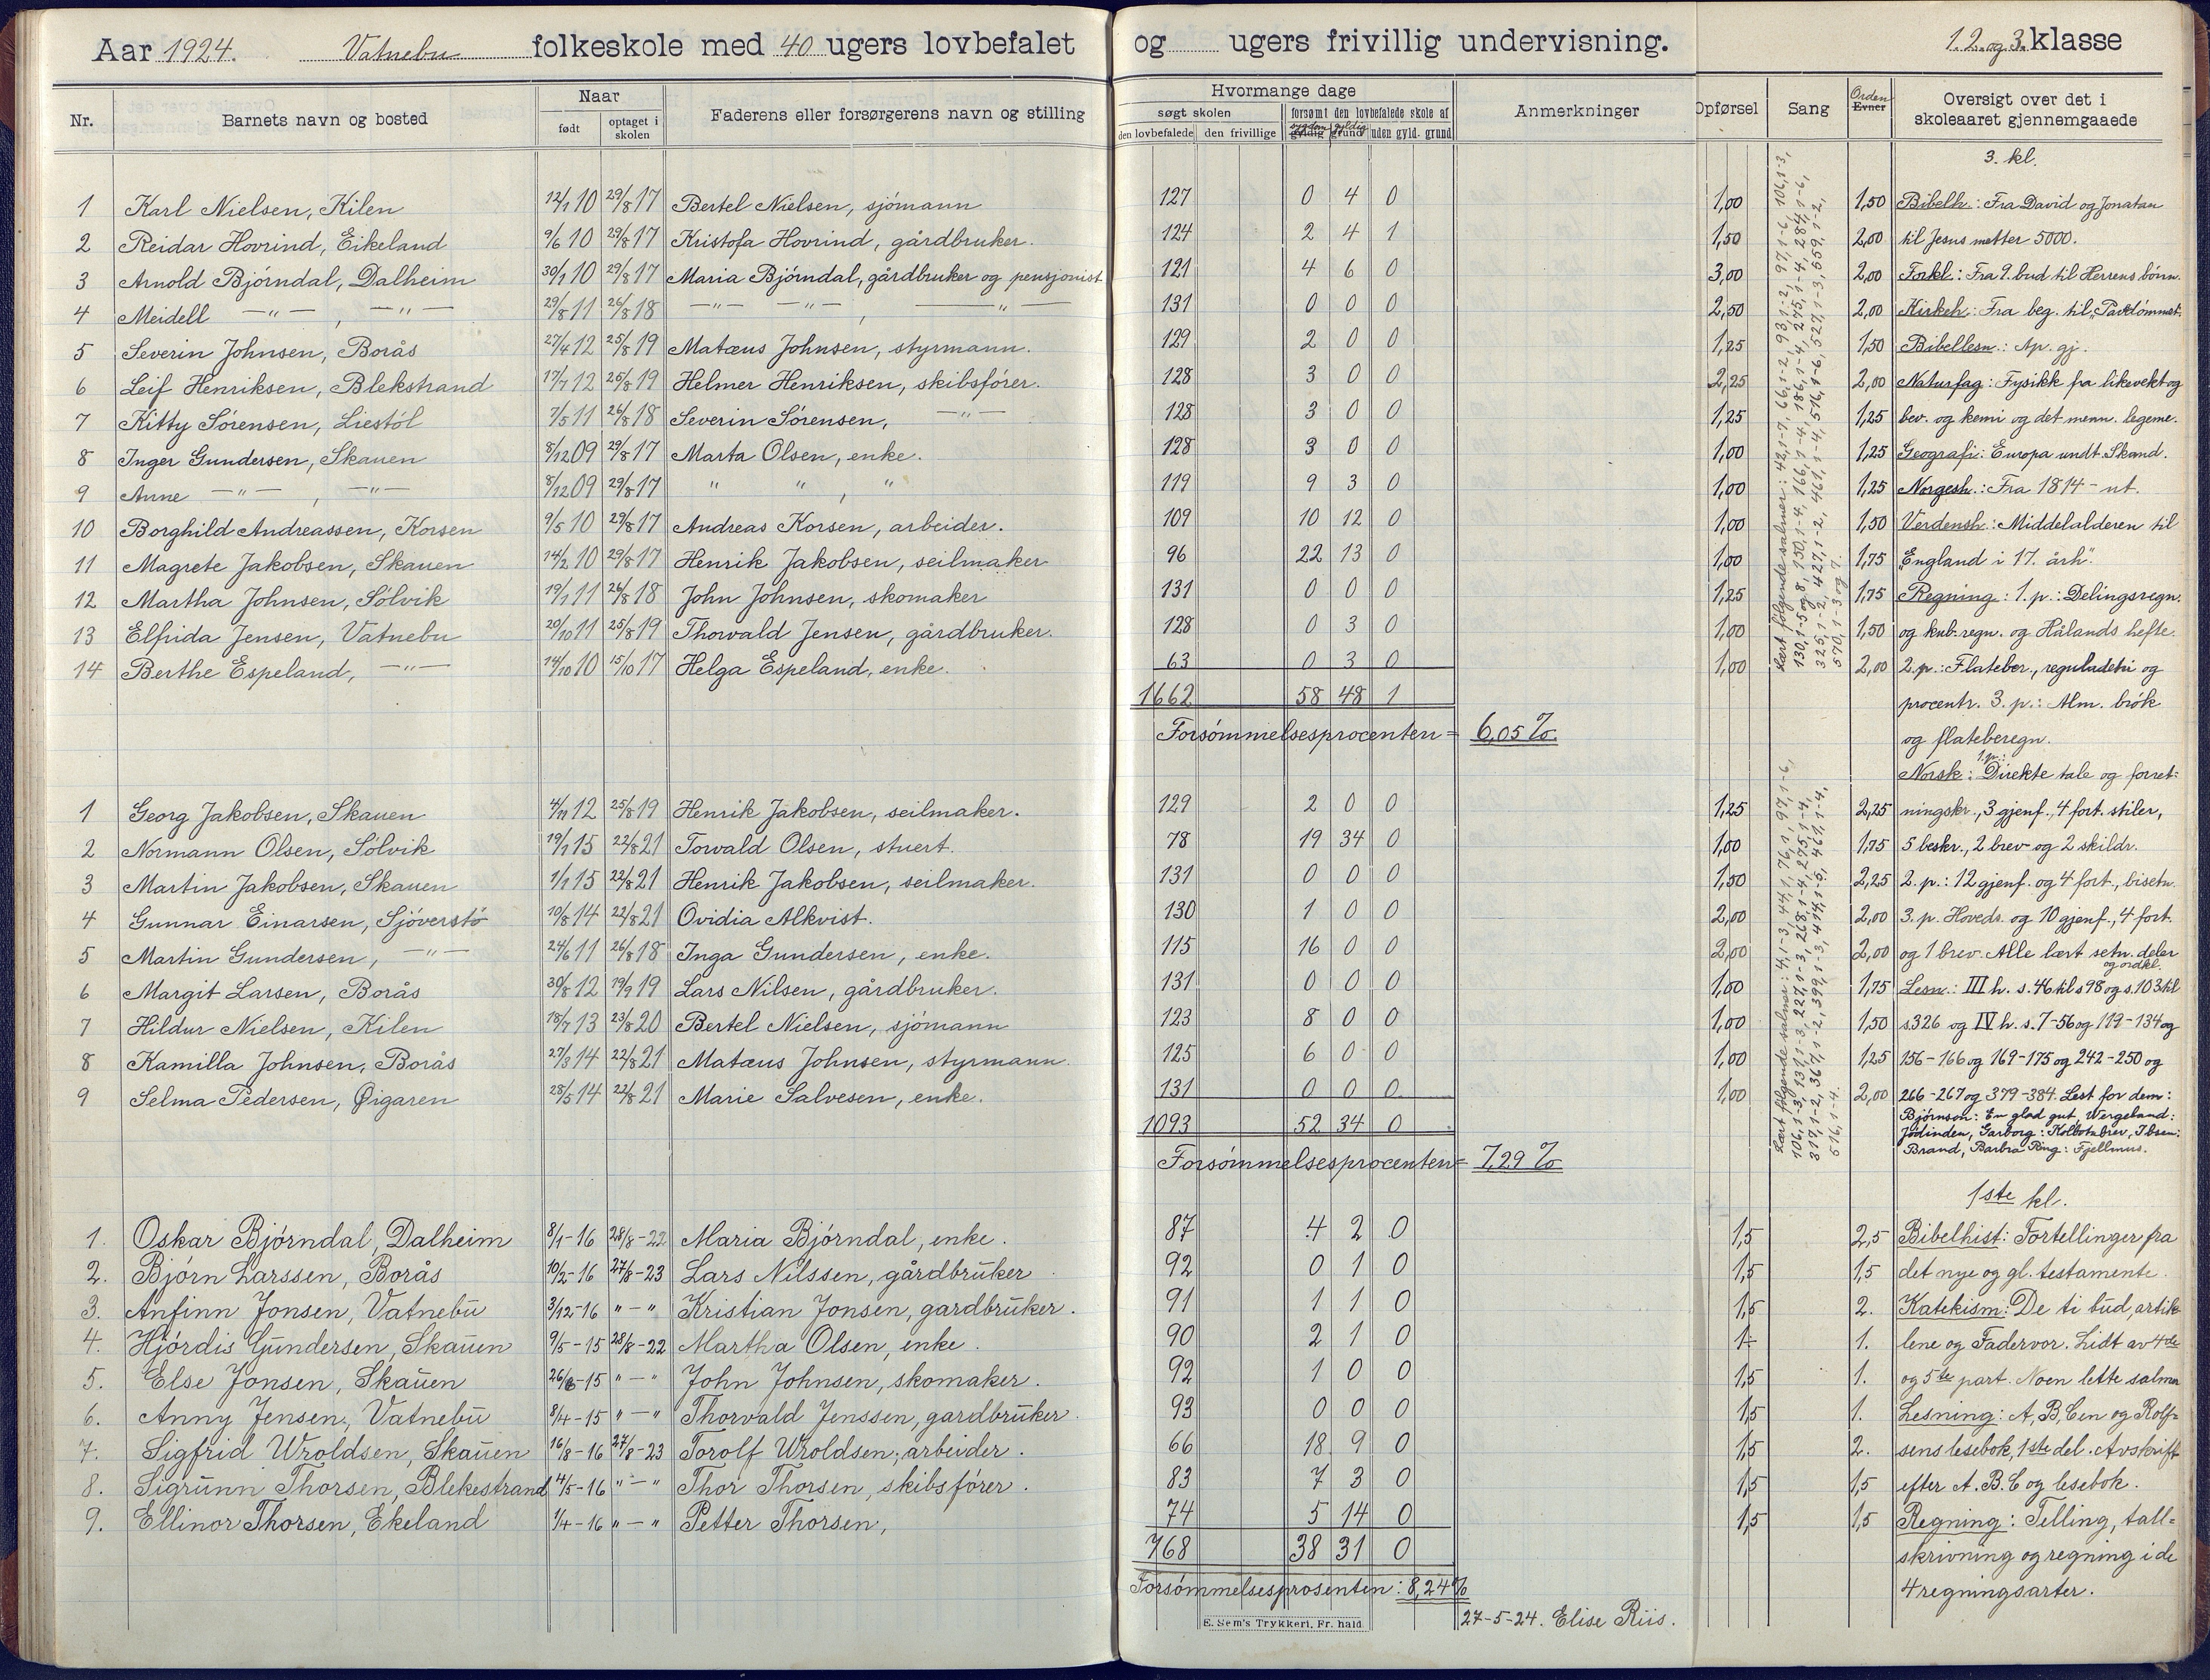 Aar 1924. Vatnebu folkeskole med 40 ugers lovbefalet og ugers frivillig undervisning. 1. 2. og 3. klasse
Nr. Barnets navn og bosted Naar født optaget i skolen Faderens eller forsørgerens navn og stilling
Hvormange dage søgt skolen den lovbefalede den frivillige forsømt den lovbefalede skole af gyldig sygdom grund gyldig uden gyld. grund Anmerkninger Opførsel Sang Evner Orden Oversigt over det i skoleaaret gjennemgaaede
3. kl.
1 Karl Nielsen, Kilen 12/1 10 29/8 17 Bertel Nielsen, sjömann 127 0 4 0 1,00 1,50 Bibelh.: Fra David og Jonatan
2 Reidar Hovrind, Eikeland 9/6 10 29/8 17 Kristofa Hovrind, gårdbruker. 124 2 4 1 1,50 2,00 til Jesus metter 5000.
3 Arnold Björndal, Dalheim 30/1 10 29/8 17 Maria Björndal, gårdbruker og pensjonist 121 4 6 0 3,00 2,00 Forkl.: Fra 9. bud til Herrens bönn.
4 Meidell —"— , —"— 29/8 11 26/8 18 —"— —"— , —"— 131 0 0 0 2,50 2,00 Kirkeh.: Fra beg. til "Pavedömmet.
5 Severin Johnsen, Borås 27/4 12 25/8 19 Matæus Johnsen, styrmann. 129 2 0 0 1,25 1,50 Bibellesn.: Ap. gj.
6 Leif Henriksen, Blekstrand 17/7 12 25/8 19 Helmer Henriksen, skibsförer. 128 3 0 0 2,25 2,00 Naturfag: Fysikk fra likevekt og
7 Kitty Sörensen, Liestöl 7/5 11 26/8 18 Severin Sörensen, —"— 128 3 0 0 1,25 1,25 bev. og kemi og det menn. legeme.
8 Inger Gundersen, Skauen 8/12 09 29/8 17 Marta Olsen, enke. 128 3 0 0 1,00 1,25 Geografi: Europa undt. Skand.
9 Anne —"— , —"— 8/12 09 29/8 17 " " , " 119 9 3 0 1,00 1,25 Norgesh.: Fra 1814 - ut.
10 Borghild Andreassen, Korsen 9/5 10 29/8 17 Andreas Korsen, arbeider. 109 10 12 0 1,00 1,50 Verdensh.: Middelalderen til
11 Magrete Jakobsen, Skauen 14/2 10 29/8 17 Henrik Jakobsen, seilmaker 96 22 13 0 1,00 1,75 "England i 17. årh".
12 Martha Johnsen, Sölvik 19/1 11 26/8 18 John Johnsen, skomaker 131 0 0 0 1,25 1,75 Regning: 1. p.: Delingsregn.
13 Elfrida Jensen, Vatnebu 20/10 11 25/8 19 Thorvald Jensen, gårdbruker. 128 0 3 0 1,00 1,50 og kub. regn. og Hålands hefte.
14 Berthe Espeland, —"— 14/10 10 15/10 17 Helga Espeland, enke. 63 0 3 0 1,00 2,00 2. p.: Flateber., reguladetri og
1662 58 48 1 procentr. 3. p.: Alm. brök
Forsömmelsesprocenten = 6,05 %. og flateberegn.
Norsk: 1.p.: Direkte tale og forret-
1 Georg Jakobsen, Skauen 4/11 12 25/8 19 Henrik Jakobsen, seilmaker. 129 2 0 0 1,25 2,25 ningskr., 3 gjenf., 4 fort. stiler,
2 Normann Olsen, Solvik 19/1 15 22/8 21 Torvald Olsen, stuert. 78 19 34 0 1,00 1,75 5 beskr., 2 brev og 2 skildr.
3 Martin Jakobsen, Skauen 1/1 15 22/8 21 Henrik Jakobsen, seilmaker. 131 0 0 0 1,50 2,25 2. p.: 12 gjenf. og 4 fort., bisetn.
4 Gunnar Einarsen, Sjöverstö 10/8 14 22/8 21 Ovidia Alkvist. 130 1 0 0 2,00 2,00 3. p. Hoveds. og 10 gjenf., 4 fort.
5 Martin Gundersen, —"— 24/6 11 26/8 18 Inga Gundersen, enke. 115 16 0 0 2,00 2,00 og 1 brev. Alle lært setn. deler og ordkl.
6 Margit Larsen, Borås 30/8 12 19/9 19 Lars Nilsen, gårdbruker. 131 0 0 0 1,00 1,75 Lesn.: III h. s. 46 til s 98 og s. 103 til
7 Hildur Nielsen, Kilen 18/7 13 23/8 20 Bertel Nielsen, sjömann 123 8 0 0 1,00 1,50 s. 326 og IV h. s. 7-56 og 119-134 og
8 Kamilla Johnsen, Borås 27/3 14 22/8 21 Matæus Johnsen, styrmann. 125 6 0 0 1,00 1,25 156-166 og 169-175 og 242-250 og
9 Selma Pedersen, Øigaren 28/5 14 22/8 21 Marie Salvesen, enke. 131 0 0 0 1,00 2,00 266-267 og 379-384. Lest for dem:
1093 52 34 0 Björnson: En glad gut, Wergeland:
Jödinden, Garborg: Kolbotnbrev, Ibsen:
Forsömmelsesprocenten = 7,29 % Brand, Barbra Ring: Fjellmus.
1ste kl.
1. Oskar Björndal, Dalheim 8/1-16 28/8-22 Maria Björndal, enke. 87 4 2 0 1,5 2,5 Bibelhist: Fortellinger fra
2. Björn Larssen, Borås 10/2-16 27/8-23 Lars Nilssen, gårdbruker 92 0 1 0 1,5 1,5 det nye og gl. testamente.
3. Anfinn Jonsen, Vatnebu 3/12-16 "-" Kristian Jonsen, gardbruker. 91 1 1 0 1,5 2. Katekism: De ti bud, artik-
4. Hjördis Gundersen, Skauen 9/5-15 28/8-22 Martha Olsen, enke. 90 2 1 0 1. 1. lene og Fadervor. Lidt av 4de
5. Else Jonsen, Skauen 26/6-15 "-" John Johnsen, skomaker. 92 1 0 0 1,5 1. og 5te part. Noen lette salmer
6. Anny Jensen, Vatnebu 8/4-15 "-" Thorvald Jenssen, gardbruker. 93 0 0 0 1,5 1. Lesning: A, B, C en og Rolf-
7. Sigfrid Wroldsen, Skauen 16/8-16 27/8-23 Torolf Wroldsen, arbeider. 66 18 9 0 1,5 2. sens lesebok, 1ste del. Avskrift
8. Sigrunn Thorsen, Blekestrand 4/5-16 "-" Thor Thorsen, skibsförer. 83 7 3 0 1,5 1,5 efter A. B. C og lesebok.
9. Ellinor Thorsen, Ekeland 1/4-16 "-" Petter Thorsen, 74 5 14 0 1,5 1,5 Regning: Telling, tall-
768 38 31 0 skrivning og regning i de
Forsömmelsesprosenten: 8,24% 4 regningsarter.
27-5-24. Elise Riis.
E. Sem's Trykkeri, Fr.hald.